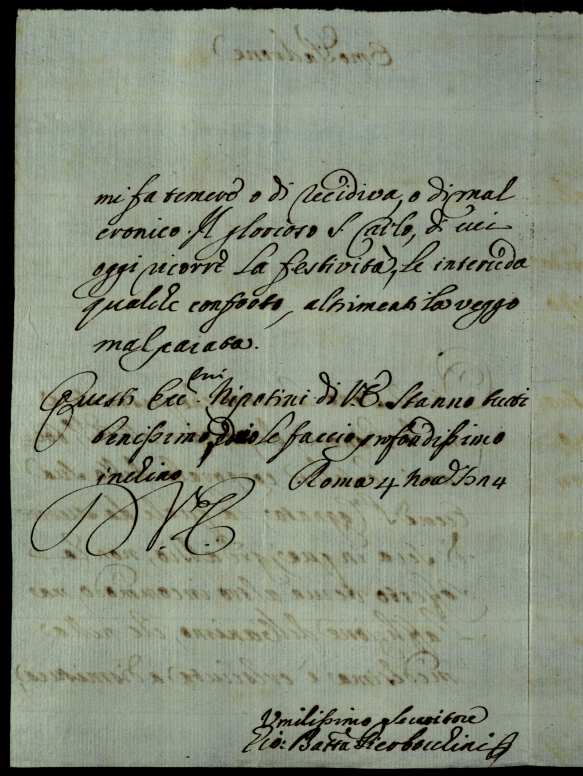 mi fa temere o di recidiva, o di mal
cronico. Il glorioso S. Carlo, di cui
oggi ricorre la festività, le interceda
qualche conforto, altrimenti la veggo
mal parata.
Questi Ecc.mi Nipotini di V.E. stanno tutti
benissimo, ed io le faccio profondissimo
inchino. Roma 4 Nov. 
D V.E.
Umilissimo Servitore
Gio: Batta